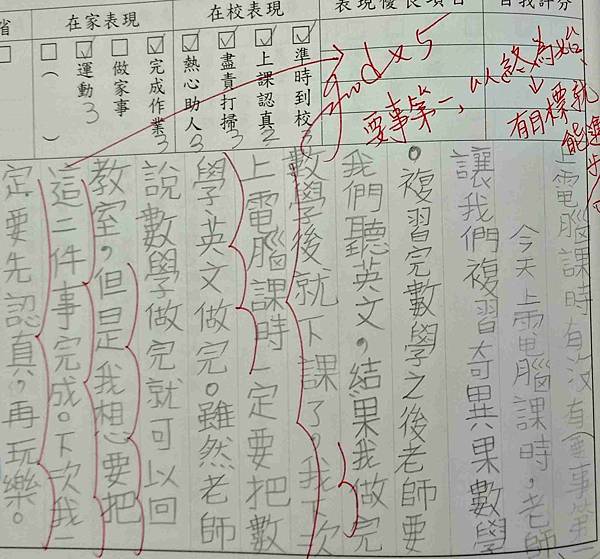 省
在家表現
在校表現
表現優良項目
自我評分
準時到校 3
上課認真 2
盡責打掃 3
熱心助人 3
完成作業 3
做家事
運動 3
( )
good x 5
要事第一,以終為始
有目標就能進步
上電腦課時有沒有要事第
今天上電腦課時,老師
讓我們複習奇異果數學
。複習完數學之後老師要
我們聽英文,結果我做完
數學後就下課了。我下次
上電腦課時一定要把數
學、英文做完。雖然老師
說數學做完就可以回
教室,但是我想要把
這二件事完成。下次我一
定要先認真,再玩樂。